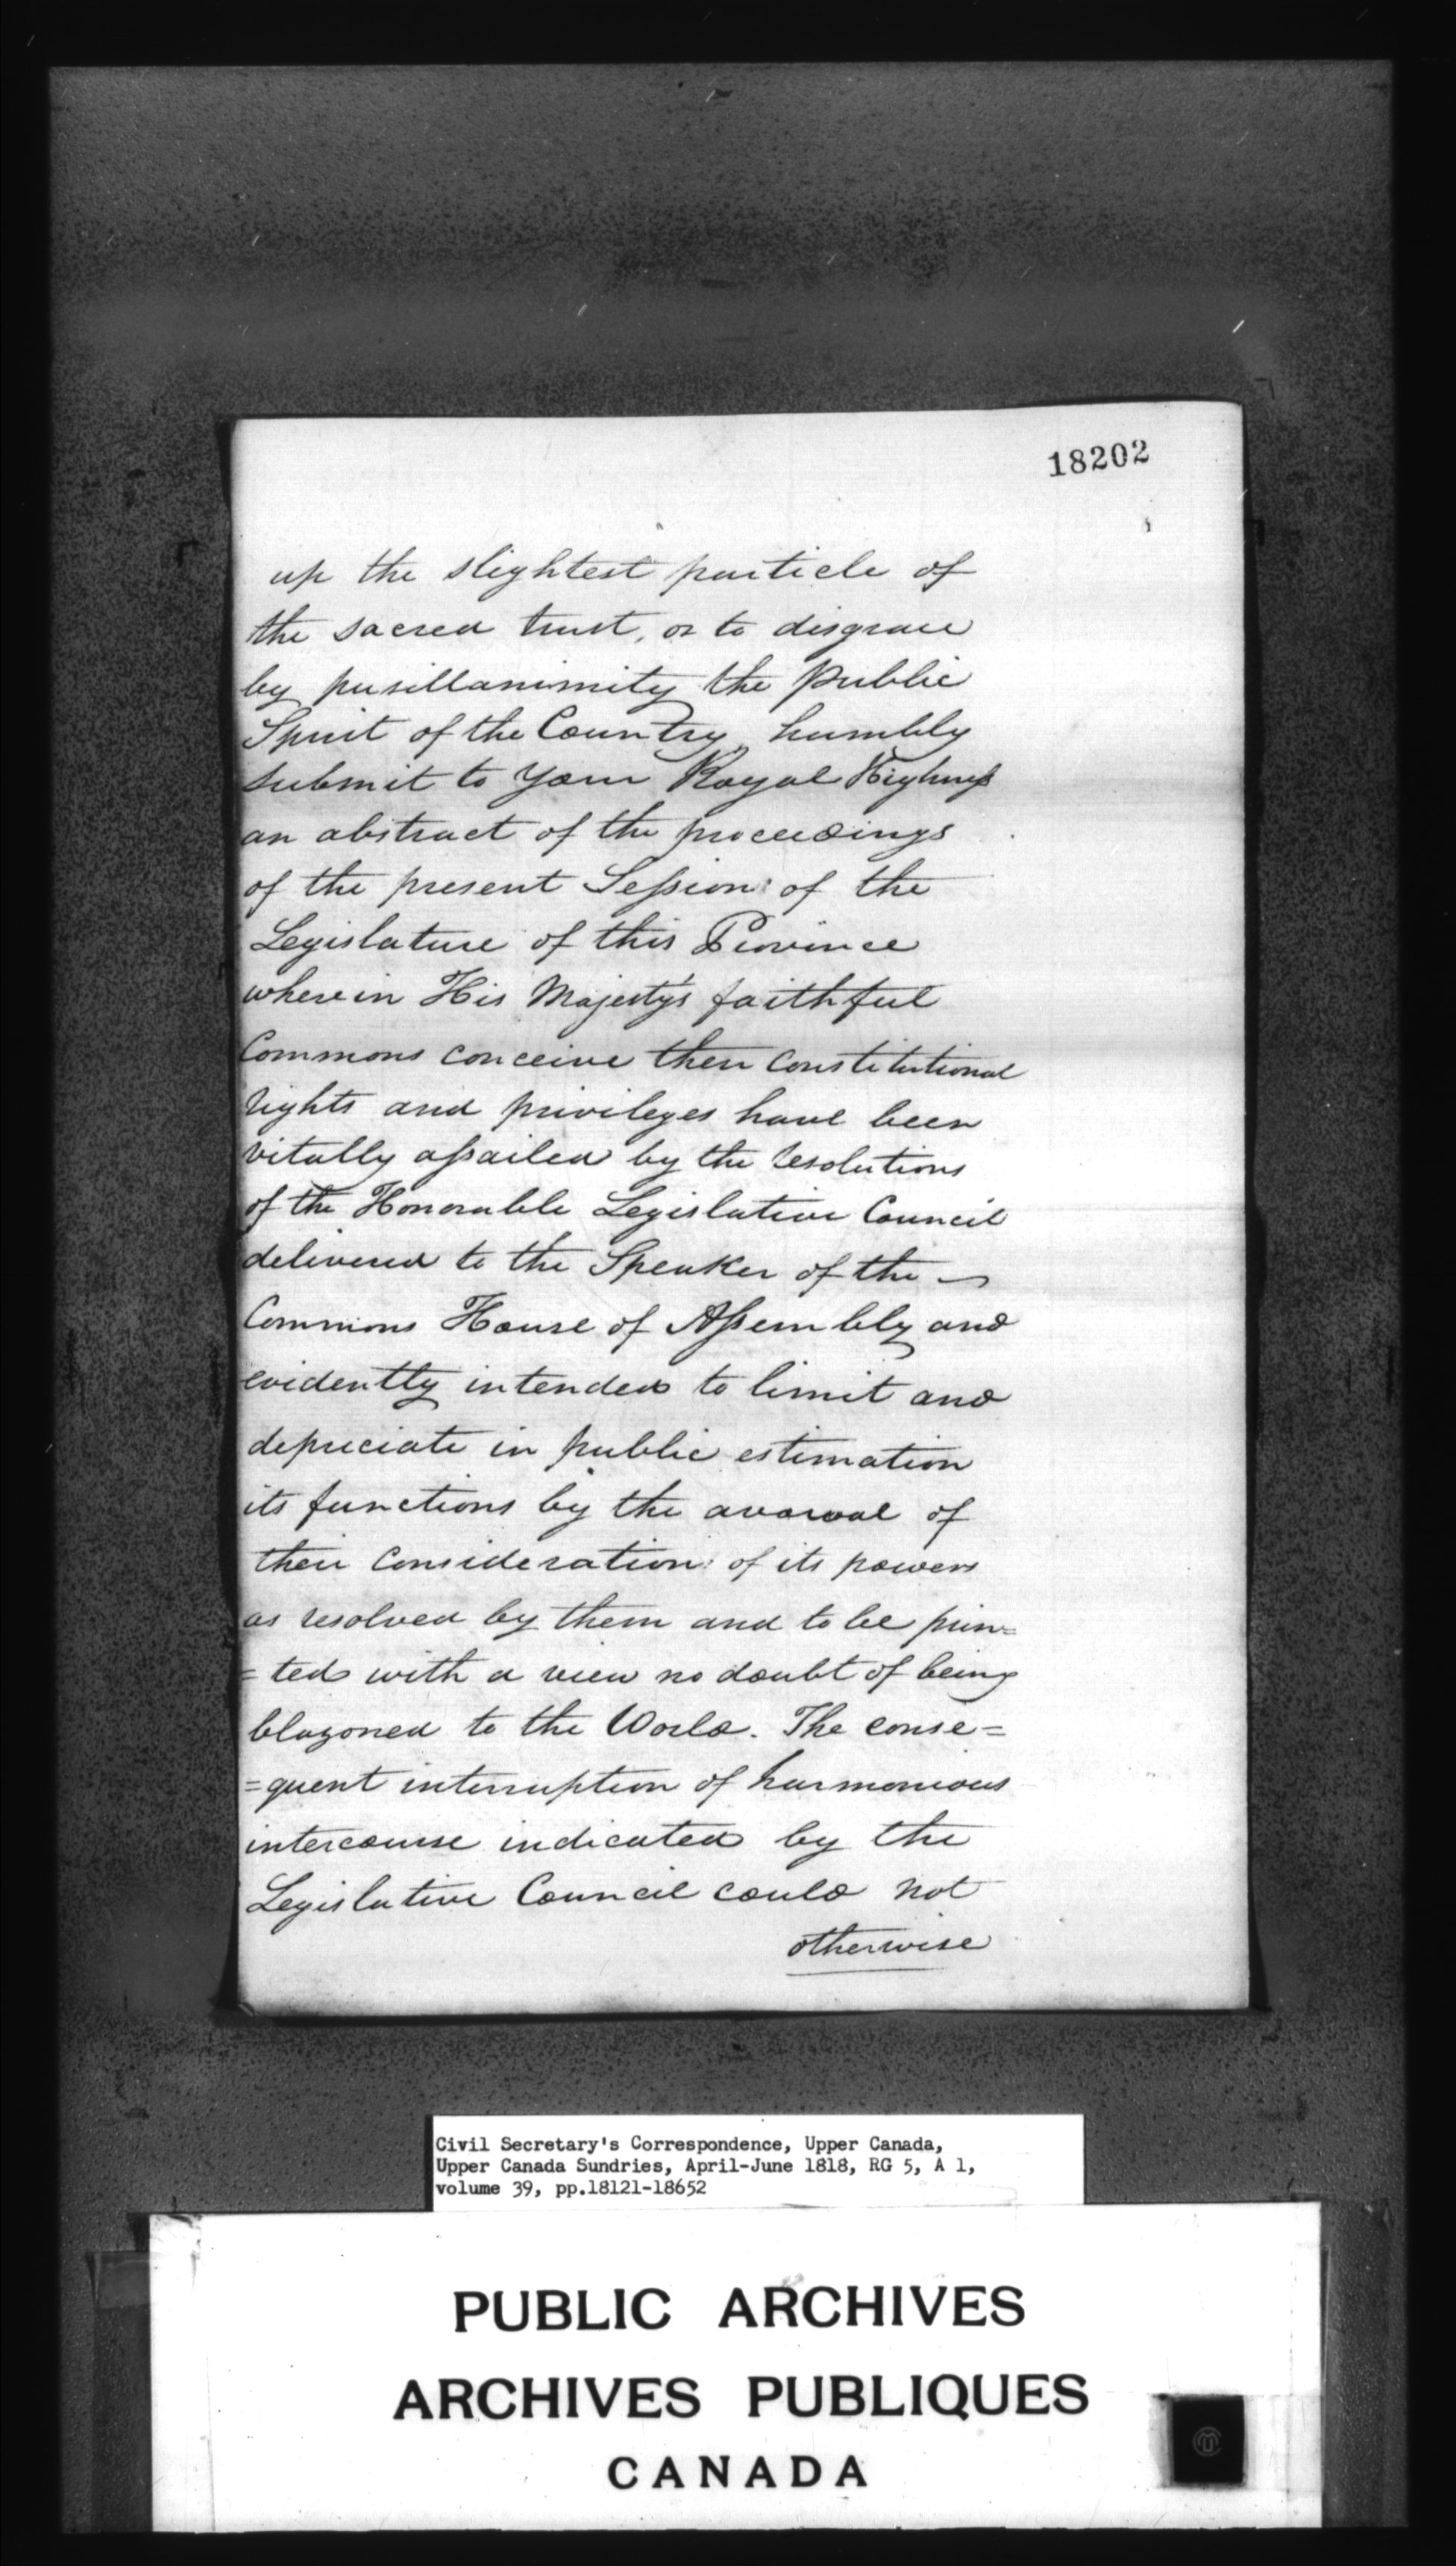 18202
up the slightest particle of
the sacred trust, or to disgrace
by pusillanimity the public
Spirit of the Country, humbly
submit to Your Royal Highness
an abstract of the proceedings
of the present Session of the
Legislature of this Province
wherein His Majesty's faithful
Commons conceive their Constitutional
rights and privileges have been
vitally assailed by the resolutions
of the Honorable Legislative Council
delivered to the Speaker of the
Commons House of Assembly and
evidently intended to limit and
depreciate in public estimation
its functions by the avowal of
their Consideration of its powers
as resolved by them and to be prin=
=ted with a view no doubt of being
blazoned to the World. The conse=
=quent interruption of harmonious
intercourse indicated by the
Legislative Council could not
otherwise
Civil Secretary's Correspondence, Upper Canada,
Upper Canada Sundries, April-June 1818, RG 5, A 1,
volume 39, pp.18121-18652
PUBLIC ARCHIVES
ARCHIVES PUBLIQUES
CANADA